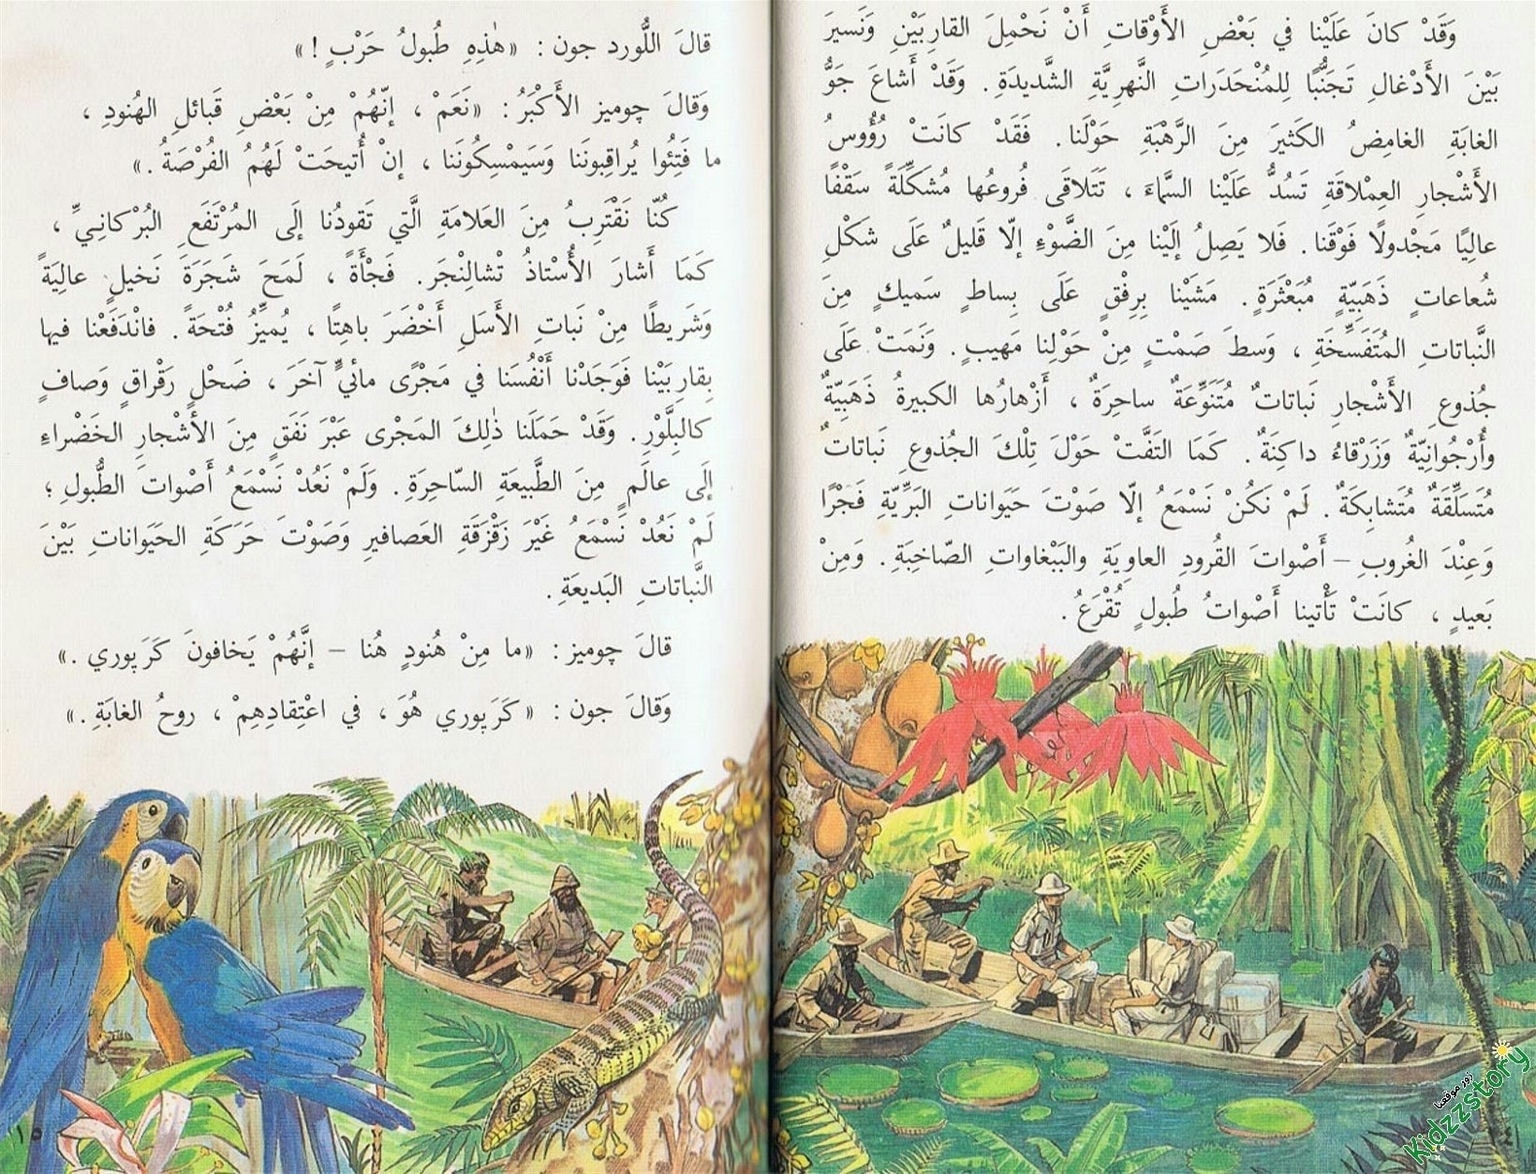 وَقَدْ كانَ عَلَيْنا في بَعْضِ الأَوْقاتِ أَنْ نَحْمِلَ القارِبَيْنِ وَنَسيرَ
بَيْنَ الأَدْغالِ تَجَنُّبًا لِلمُنْحَدَراتِ النَّهرِيَّةِ الشَّديدَةِ. وَقَدْ أَشاعَ جَوُّ
الغابَةِ الغامِضُ الكَثيرَ مِنَ الرَّهْبَةِ حَوْلَنا. فَقَدْ كانَتْ رُؤُوسُ
الأَشْجارِ العِمْلاقَةِ تَسُدُّ عَلَيْنا السَّماءَ ، تَتَلاقَى فُروعُها مُشَكِّلَةً سَقْفًا
عالِيًا مَجْدولًا فَوْقَنا. فَلا يَصِلُ إلَيْنا مِنَ الضَّوْءِ إلّا قَليلٌ عَلَى شَكْلِ
شُعاعاتٍ ذَهَبِيَّةٍ مُبَعْثَرَةٍ. مَشَيْنا بِرِفْقٍ عَلَى بِساطٍ سَميكٍ مِنَ
النَّباتاتِ المُتَفَسِّخَةِ ، وَسطَ صَمْتٍ مِنْ حَوْلِنا مَهيبٍ. وَنَمَتْ عَلَى
جُذوعِ الأَشْجارِ نَباتاتٌ مُتَنَوِّعَةٌ ساحِرَةٌ ، أَزْهارُها الكَبيرةُ ذَهَبِيَّةٌ
وأُرْجُوانِيَّةٌ وَزَرْقاءُ داكِنَةٌ. كَمَا التَفَّتْ حَوْلَ تِلْكَ الجُذوعِ نَباتاتٌ
مُتَسَلِّقَةٌ مُتَشابِكَةٌ. لَمْ نَكُنْ نَسْمَعُ إلّا صَوْتَ حَيَواناتِ البَرِّيَّةِ فَجْرًا
وَعِنْدَ الغُروبِ – أَصْواتَ القُرودِ العاوِيَةِ والبَبْغاواتِ الصّاخِبَةِ. وَمِنْ
بَعيدٍ ، كانَتْ تَأْتينا أَصْواتُ طُبولٍ تُقْرَعُ.
قالَ اللُّورد جون : «هٰذِهِ طُبولُ حَرْبٍ !»
وَقالَ چوميز الأَكْبَرُ : «نَعَمْ ، إنّهُمْ مِنْ بَعْضِ قَبائلِ الهُنودِ ،
ما فَتِئُوا يُراقِبونَنا وَسَيَمْسِكُونَنا ، إنْ أُتيحَتْ لَهُمُ الفُرْصَةُ.»
كُنّا نَقْتَرِبُ مِنَ العَلامَةِ الَّتي تَقودُنا إلَى المُرْتَفَعِ البُرْكانِيِّ ،
كَمَا أَشارَ الأُسْتاذُ تْشالِنْجَر. فَجْأَةً ، لَمَحَ شَجَرَةَ نَخيلٍ عالِيَةً
وَشَريطًا مِنْ نَباتِ الأَسَلِ أَخْضَرَ باهِتًا ، يُميِّزُ فُتْحَةً. فانْدَفَعْنا فيها
بِقارِبَيْنا فَوَجَدْنا أَنْفُسَنا في مَجْرًى مائيٍّ آخَرَ ، ضَحْلٍ رَقْراقٍ وَصافٍ
كالبِلَّوْرِ. وَقَدْ حَمَلَنا ذٰلِكَ المَجْرى عَبْرَ نَفَقٍ مِنَ الأَشْجارِ الخَضْراءِ
إلَى عالَمٍ مِنَ الطَّبيعَةِ السّاحِرَةِ. وَلَمْ نَعُدْ نَسْمَعُ أَصْواتَ الطُّبولِ ؛
لَمْ نَعُدْ نَسْمَعُ غَيْرَ زَقْزَقَةِ العَصافيرِ وَصَوْتَ حَرَكَةِ الحَيَواناتِ بَيْنَ
النَّباتاتِ البَديعَةِ.
قالَ چوميز : «ما مِنْ هُنودٍ هُنا – إنَّهُمْ يَخافونَ كَرَپوري.»
وَقالَ جون : «كَرَپوري هُوَ ، في اعْتِقادِهِمْ ، روحُ الغابَةِ.»
١٥
زور موقعنا
Kidzzstory